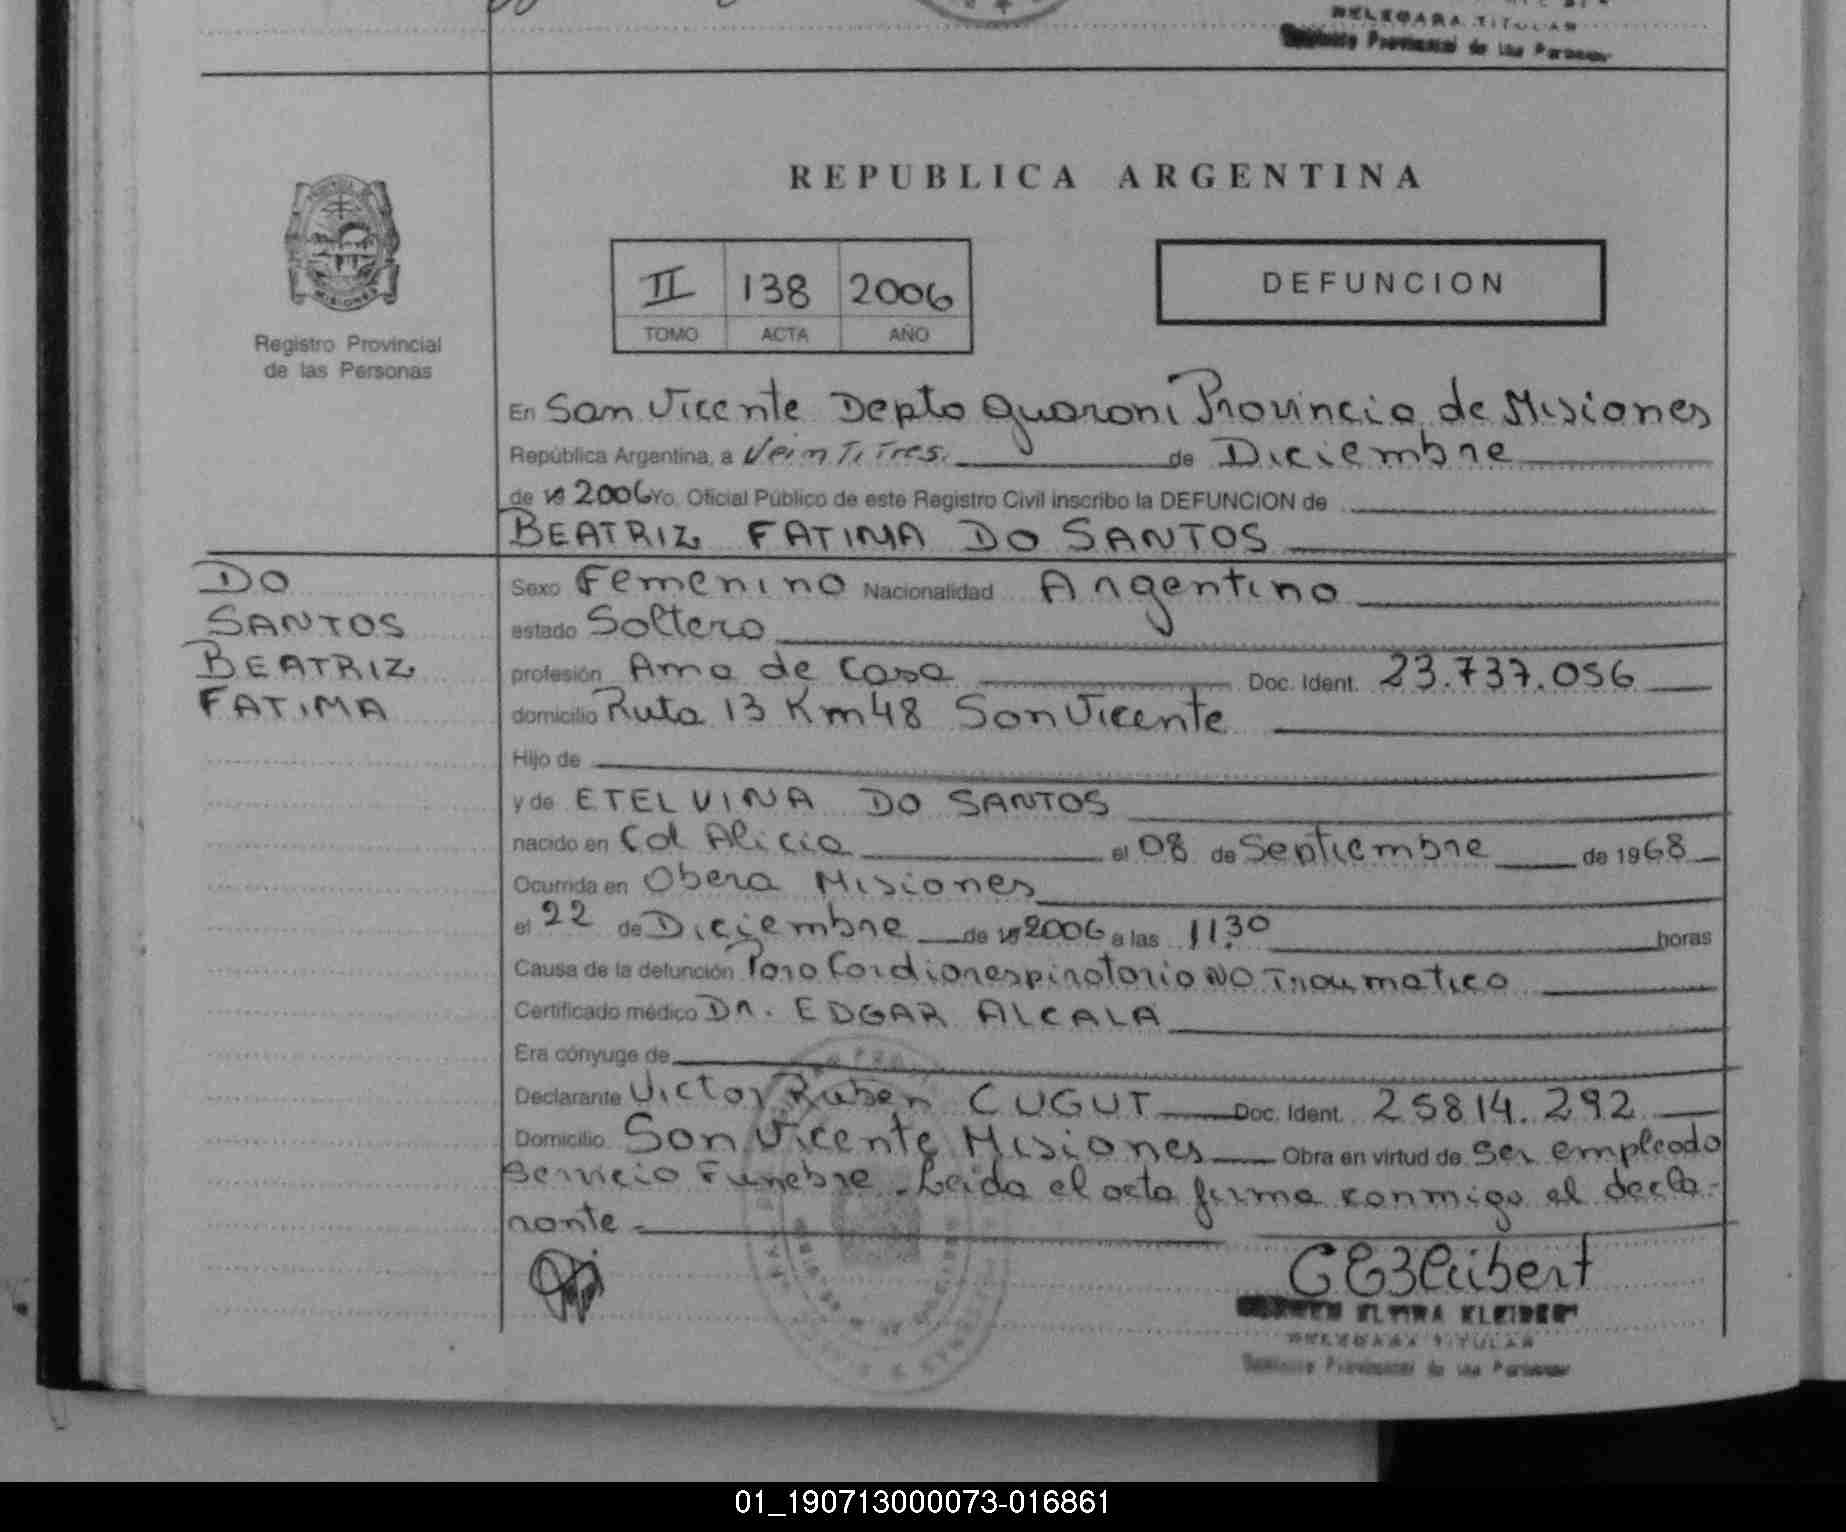 DELEGADA TITULAR
Registro Provincial de las Personas
REPUBLICA ARGENTINA
II 138 2006
TOMO ACTA AÑO
DEFUNCION
MISIONES
Registro Provincial
de las Personas
En San Vicente Depto Guarani Provincia de Misiones
República Argentina, a Veintitres. de Diciembre
de 19 2006 Yo, Oficial Público de este Registro Civil inscribo la DEFUNCION de
BEATRIZ FATIMA DO SANTOS
DO
SANTOS
BEATRIZ
FATIMA
Sexo Femenino Nacionalidad Argentina
estado Soltera
profesión Ama de Casa Doc. Ident. 23.737.056
domicilio Ruta 13 Km 48 San Vicente
Hijo de
y de ETELVINA DO SANTOS
nacido en Col Alicia el 08 de Septiembre de 1968
Ocurrida en Obera Misiones
el 22 de Diciembre de 19 2006 a las 11.30 horas
Causa de la defunción Paro Cardiorespiratorio NO Traumatico
Certificado médico Dr. EDGAR ALCALA
Era cónyuge de
Declarante Victor Ruben CUGUT Doc. Ident. 25814.292
Domicilio San Vicente Misiones Obra en virtud de Ser empleado
Servicio Funebre. Leida el acta firma conmigo el decla-
rante
CEKleibert
ELVIRA KLEIBERT
DELEGADA TITULAR
Registro Provincial de las Personas
01_190713000073-016861